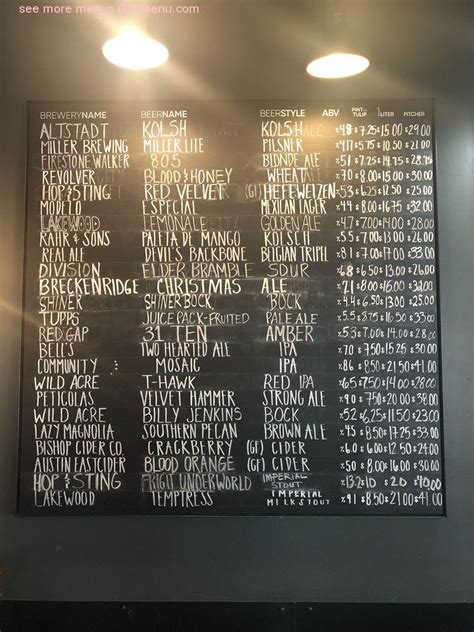 see more menus
menu.com
BREWERYNAME BEERNAME BEERSTYLE ABV PINT or TULIP 1LITER PITCHER
ALTSTADT KOLSH KOLSH ALE 4.8 $7.25 $15.00 $29.00
MILLER BREWING MILLER LITE PILSNER 4.17 $5.75 $10.50 $21.00
FIRESTONE WALKER 805 BLONDE ALE $7.25 $14.75 $28.75
REVOLVER BLOOD & HONEY WHEAT ALE 7% $8.00 $15.75 $30.00
HOP & STING RED VELVET (GF) HEFEWEIZEN 5.3 $6.25 $12.50 $25.00
MODELO ESPECIAL MEXICAN LAGER 4.4 $8.00 $16.75 $32.00
LAKEWOOD LEMONALE GOLDEN ALE 4.7 $7.00 $14.00 $28.00
RAHR & SONS PALETA DE MANGO KOLSCH 5.5 $7.00 $13.00 $26.00
REAL ALE DEVIL'S BACKBONE BELGIAN TRIPEL 8.1 $7.00 $17.00 $33.00
DIVISION ELDER BRAMBLE SOUR 6.8 $6.50 $13.00 $26.00
BRECKENRIDGE CHRISTMAS ALE 7.1 $8.00 $16.00 $34.00
SHINER SHINER BOCK BOCK 4.4 $6.50 $13.00 $25.00
TUPPS JUICE PACK-FRUITED PALE ALE 5.5 $8.75 $16.50 $33.00
RED GAP 31 TEN AMBER 5.3 $7.00 $14.00 $28.00
BELL'S TWO HEARTED ALE IPA 7.0 $7.50 $15.25 $30.00
COMMUNITY MOSAIC IPA 8.6 $8.50 $21.50 $41.00
WILD ACRE T-HAWK RED IPA 6.5 $7.50 $14.25 $28.00
PETICOLAS VELVET HAMMER STRONG ALE 9.0 $7.50 $20.00 $38.00
WILD ACRE BILLY JENKINS BOCK 5.2 $6.25 $11.50 $23.00
LAZY MAGNOLIA SOUTHERN PECAN BROWN ALE 4.5 $8.50 $17.25 $33.00
BISHOP CIDER CO. CRACKBERRY (GF) CIDER 6.0 $6.00 $12.50 $24.00
AUSTIN EASTCIDER BLOOD ORANGE (GF) CIDER 5.0 $8.00 $16.00 $30.00
HOP & STING FRIGID UNDERWORLD IMPERIAL STOUT 13.2 $10 $20 $40.00
LAKEWOOD TEMPTRESS IMPERIAL MILK STOUT 9.1 $8.50 $21.00 $41.00